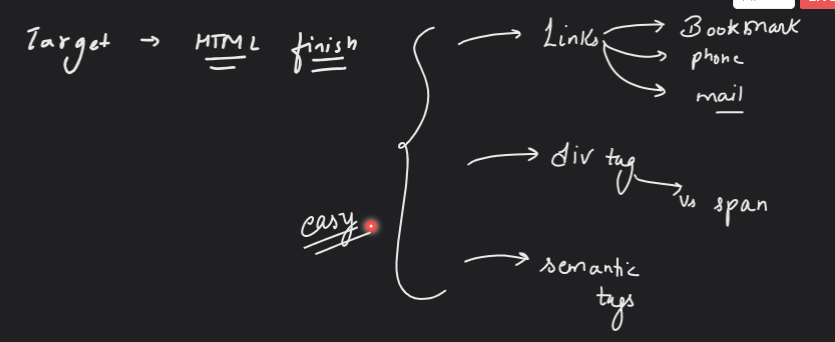 Target → HTML finish
Links → Bookmark
→ phone
→ mail
→ div tag
→ vs span
easy
→ semantic
tags